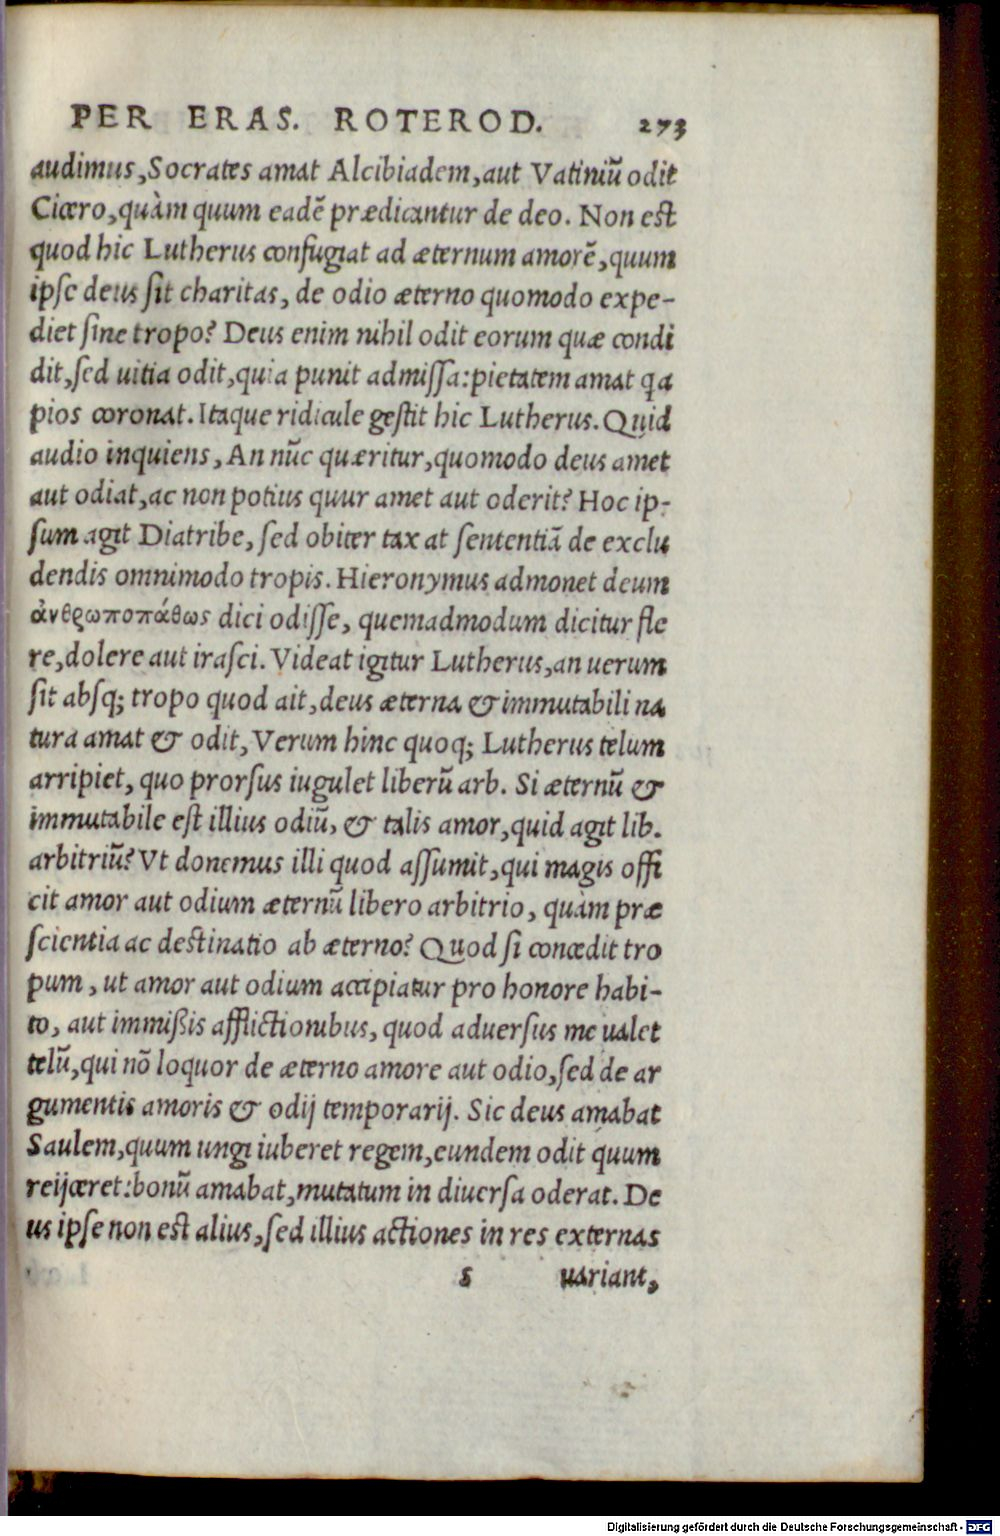 PER ERAS. ROTEROD. 273
audimus, Socrates amat Alcibiadem, aut Vatiniũ odit
Cicero, quàm quum eadẽ prædicantur de deo. Non est
quod hic Lutherus confugiat ad æternum amorẽ, quum
ipse deus sit charitas, de odio æterno quomodo expe-
diet sine tropo? Deus enim nihil odit eorum quæ condi
dit, sed uitia odit, quia punit admissa: pietatem amat q̃a
pios coronat. Itaque ridicule gestit hic Lutherus. Quid
audio inquiens, An nũc quæritur, quomodo deus amet
aut odiat, ac non potius quur amet aut oderit? Hoc ip-
sum agit Diatribe, sed obiter taxat sententiã de exclu
dendis omnimodo tropis. Hieronymus admonet deum
ἀνθρωποπάθως dici odisse, quemadmodum dicitur fle
re, dolere aut irasci. Videat igitur Lutherus, an uerum
sit absq; tropo quod ait, deus æterna & immutabili na
tura amat & odit, Verum hinc quoq; Lutherus telum
arripiet, quo prorsus iugulet liberũ arb. Si æternũ &
immutabile est illius odiũ, & talis amor, quid agit lib.
arbitriũ? Vt donemus illi quod assumit, qui magis offi
cit amor aut odium æternũ libero arbitrio, quàm præ
scientia ac destinatio ab æterno? Quod si concedit tro
pum, ut amor aut odium accipiatur pro honore habi-
to, aut immißis afflictionibus, quod aduersus me ualet
telũ, qui nõ loquor de æterno amore aut odio, sed de ar
gumentis amoris & odij temporarij. Sic deus amabat
Saulem, quum ungi iuberet regem, eundem odit quum
reijceret: bonũ amabat, mutatum in diuersa oderat. De
us ipse non est alius, sed illius actiones in res externas
s uariant,
Digitalisierung gefördert durch die Deutsche Forschungsgemeinschaft - DFG